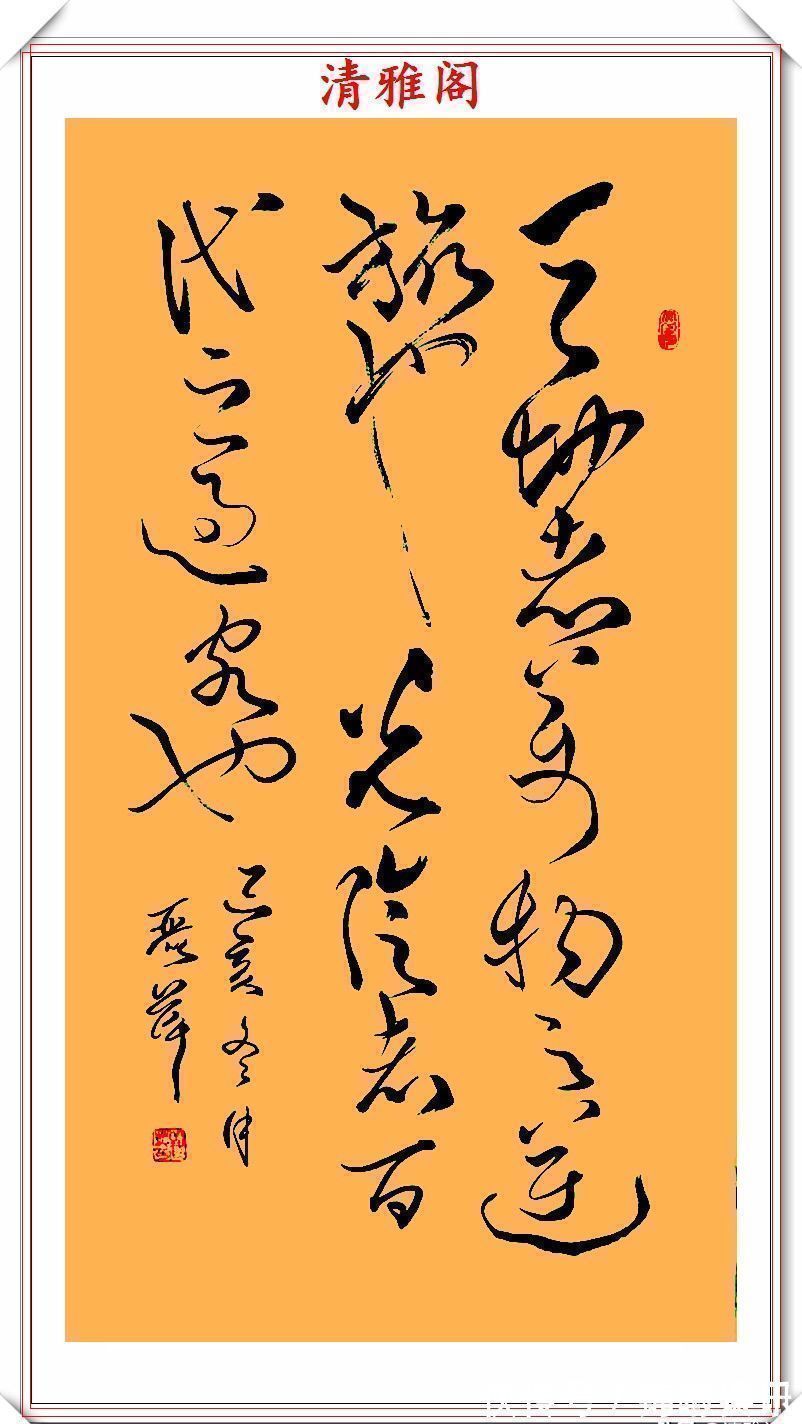 清雅阁
天地者萬物之逆
旅也光陰者百
代之過客也
己亥冬月